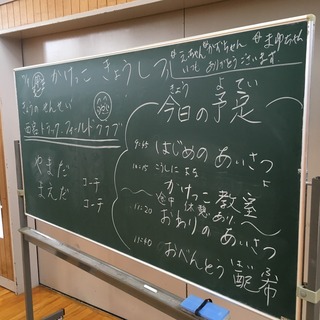 かけっこ きょうしつ
きょうの せんせい
トラック フィールドクラブ
やまだ コーチ
まえだ コーチ
かずちゃん
まゆちゃん
いつも ありがとうございます
きょう よてい
今日の予定
はじめの あいさつ
10:15
かけっこ 教室
途中 休憩あり
11:20
おわりの あいさつ
おべんとう 配布
はいふ